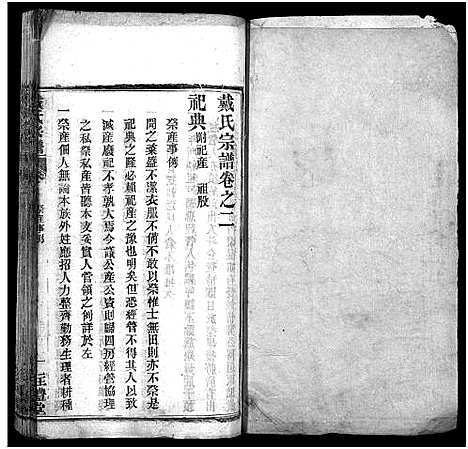 戴氏宗譜卷之二
祀典 附祀産 祖殷
祭産事例
問之粢盛不潔衣服不備不敢以祭惟士無田則亦不祭是
祀典之隆必賴祀産之豫也明矣但恐經管不得其人以致
滅産廢祀不孝孰大焉今議公産公資則歸四房經營協理
之私祭私産皆聽本支妥實人管領之例詳於左
一祭産佃人無論本族外姓應招人力整齊勤務生理者耕種